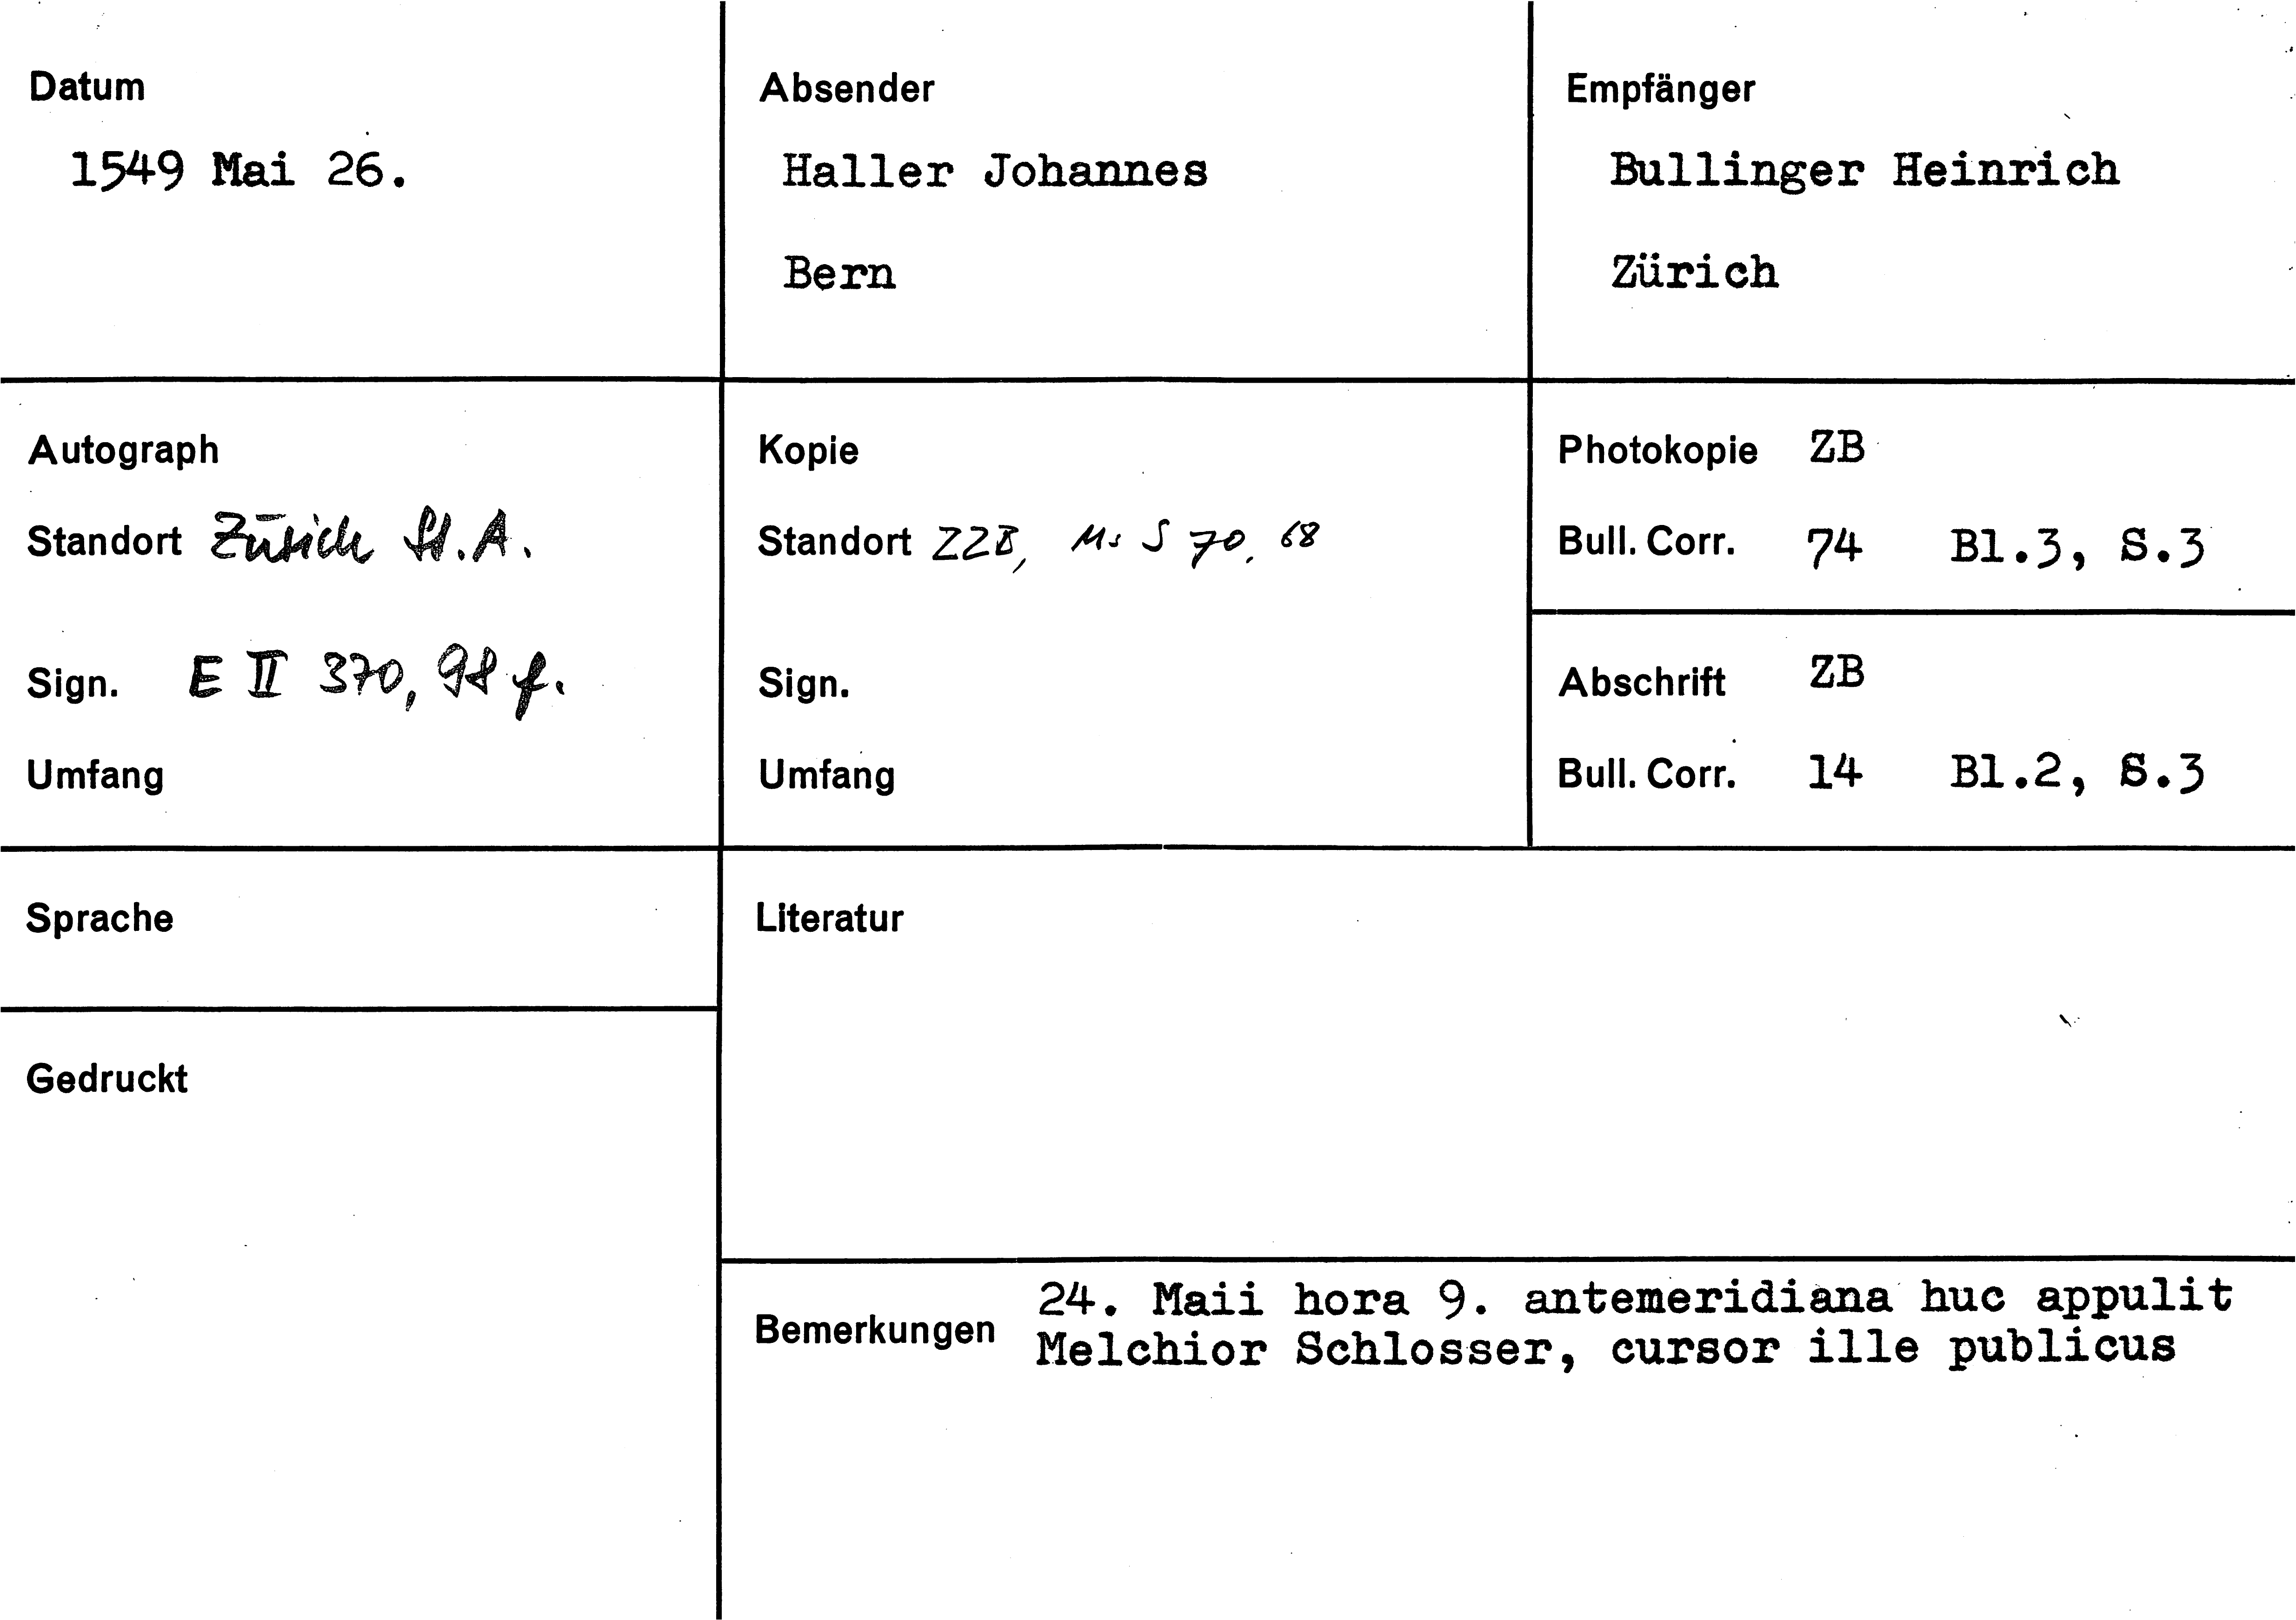 Datum
1549 Mai 26.
Absender
Haller Johannes
Bern
Empfänger
Bullinger Heinrich
Zürich
Autograph
Standort Zürich St.A.
Sign. E II 370, 98 f.
Umfang
Kopie
Standort ZZB, Ms S 70, 68
Sign.
Umfang
Photokopie ZB
Bull. Corr. 74 Bl.3, S.3
Abschrift ZB
Bull. Corr. 14 Bl.2, S.3
Sprache
Gedruckt
Literatur
Bemerkungen
24. Maii hora 9. antemeridiana huc appulit
Melchior Schlosser, cursor ille publicus